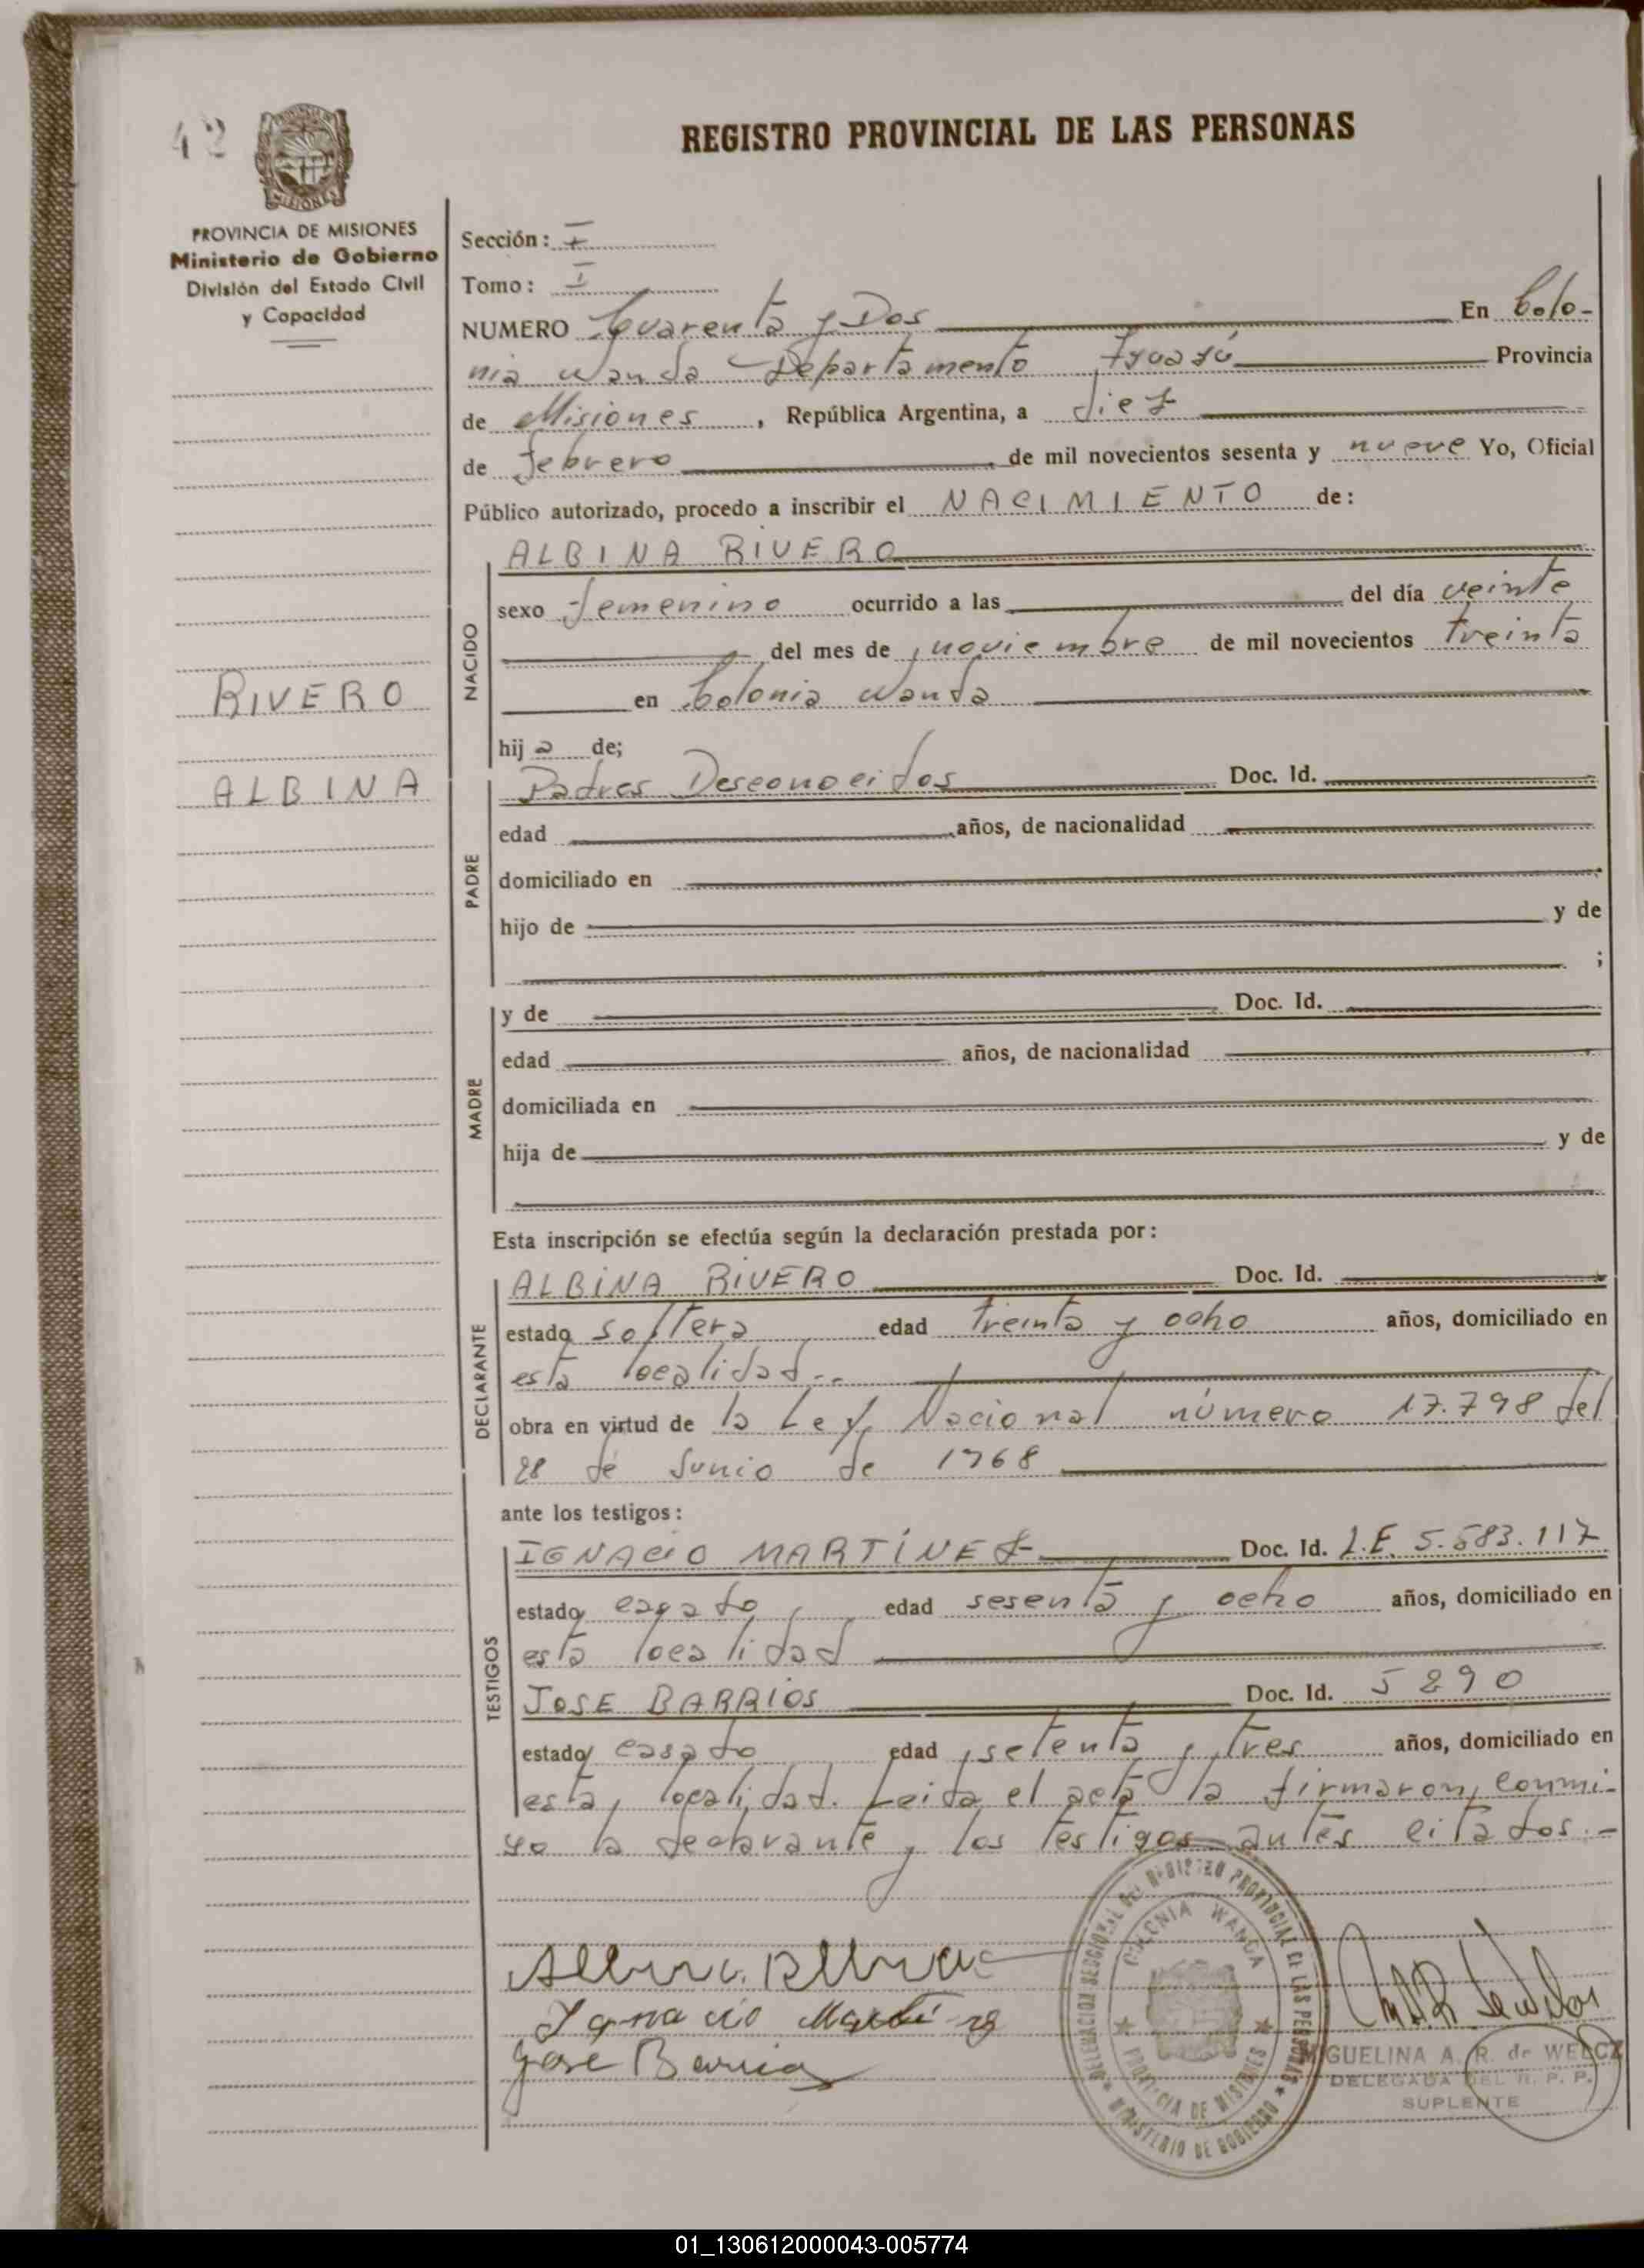 42
REGISTRO PROVINCIAL DE LAS PERSONAS
MISIONES
PROVINCIA DE MISIONES
Ministerio de Gobierno
División del Estado Civil
y Capacidad
Sección: I
Tomo: I
NUMERO Cuarenta y Dos En Colo-
nia Wanda Departamento Iguazú Provincia
de Misiones, República Argentina, a diez
de febrero de mil novecientos sesenta y nueve Yo, Oficial
Público autorizado, procedo a inscribir el NACIMIENTO de:
RIVERO
ALBINA
NACIDO
ALBINA RIVERO
sexo femenino ocurrido a las del día veinte
del mes de noviembre de mil novecientos treinta
en Colonia Wanda
hija de;
PADRE
Padres Desconocidos Doc. Id.
edad años, de nacionalidad
domiciliado en
hijo de y de
;
MADRE
y de Doc. Id.
edad años, de nacionalidad
domiciliada en
hija de y de
Esta inscripción se efectúa según la declaración prestada por:
DECLARANTE
ALBINA RIVERO Doc. Id.
estado soltera edad treinta y ocho años, domiciliado en
esta localidad..
obra en virtud de la Ley Nacional número 17.798 del
28 de Junio de 1968
ante los testigos:
TESTIGOS
IGNACIO MARTÍNEZ Doc. Id. L.E. 5.583.117
estado casado edad sesenta y ocho años, domiciliado en
esta localidad
JOSE BARRIOS Doc. Id. 5890
estado casado edad setenta y tres años, domiciliado en
esta localidad. Leida el acta la firmaron conmi-
go la declarante y los testigos antes citados.-
Ignacio Martinez
Jose Barrios
DELEGACION SECCIONAL DEL REGISTRO PROVINCIAL DE LAS PERSONAS
MINISTERIO DE GOBIERNO
COLONIA WANDA
PROVINCIA DE MISIONES
MIGUELINA A. R. de WELCZ
DELEGADA DEL R. P. P.
SUPLENTE
01_130612000043-005774